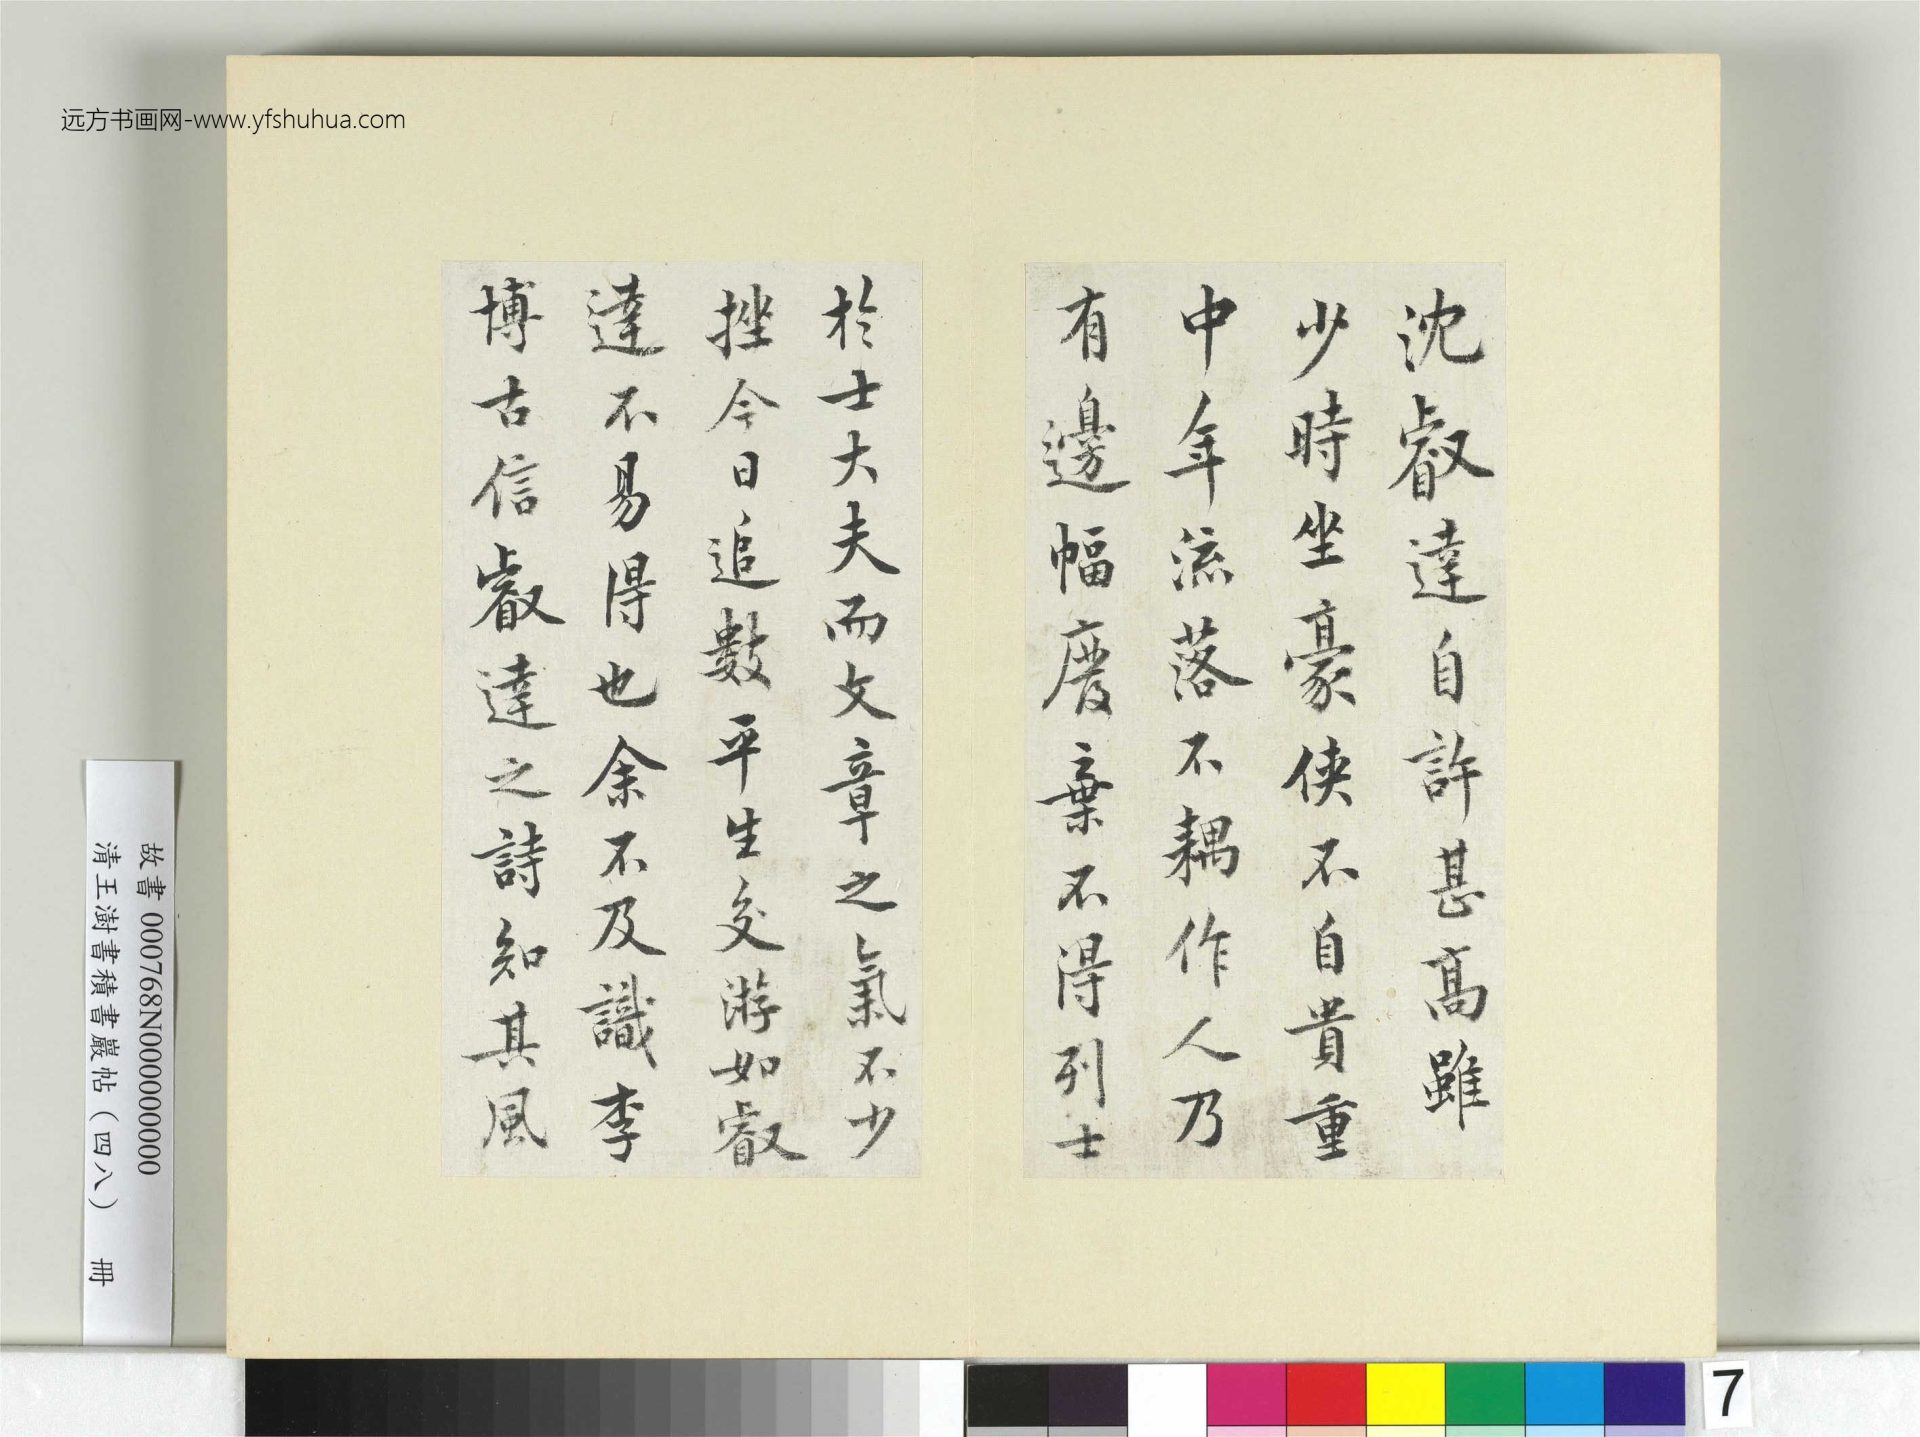 远方书画网-www.yfshuhua.com
沈叡達自許甚髙雖
少時坐豪侠不自貴重
中年流落不耦作人乃
有邊幅廢棄不得列士
於士大夫而文章之氣不少
挫今日追數平生交游如叡
達不易得也余不及識李
博古信叡達之詩知其風
故書 000768N000000000
清王澍書積書巖帖（四八） 冊
7